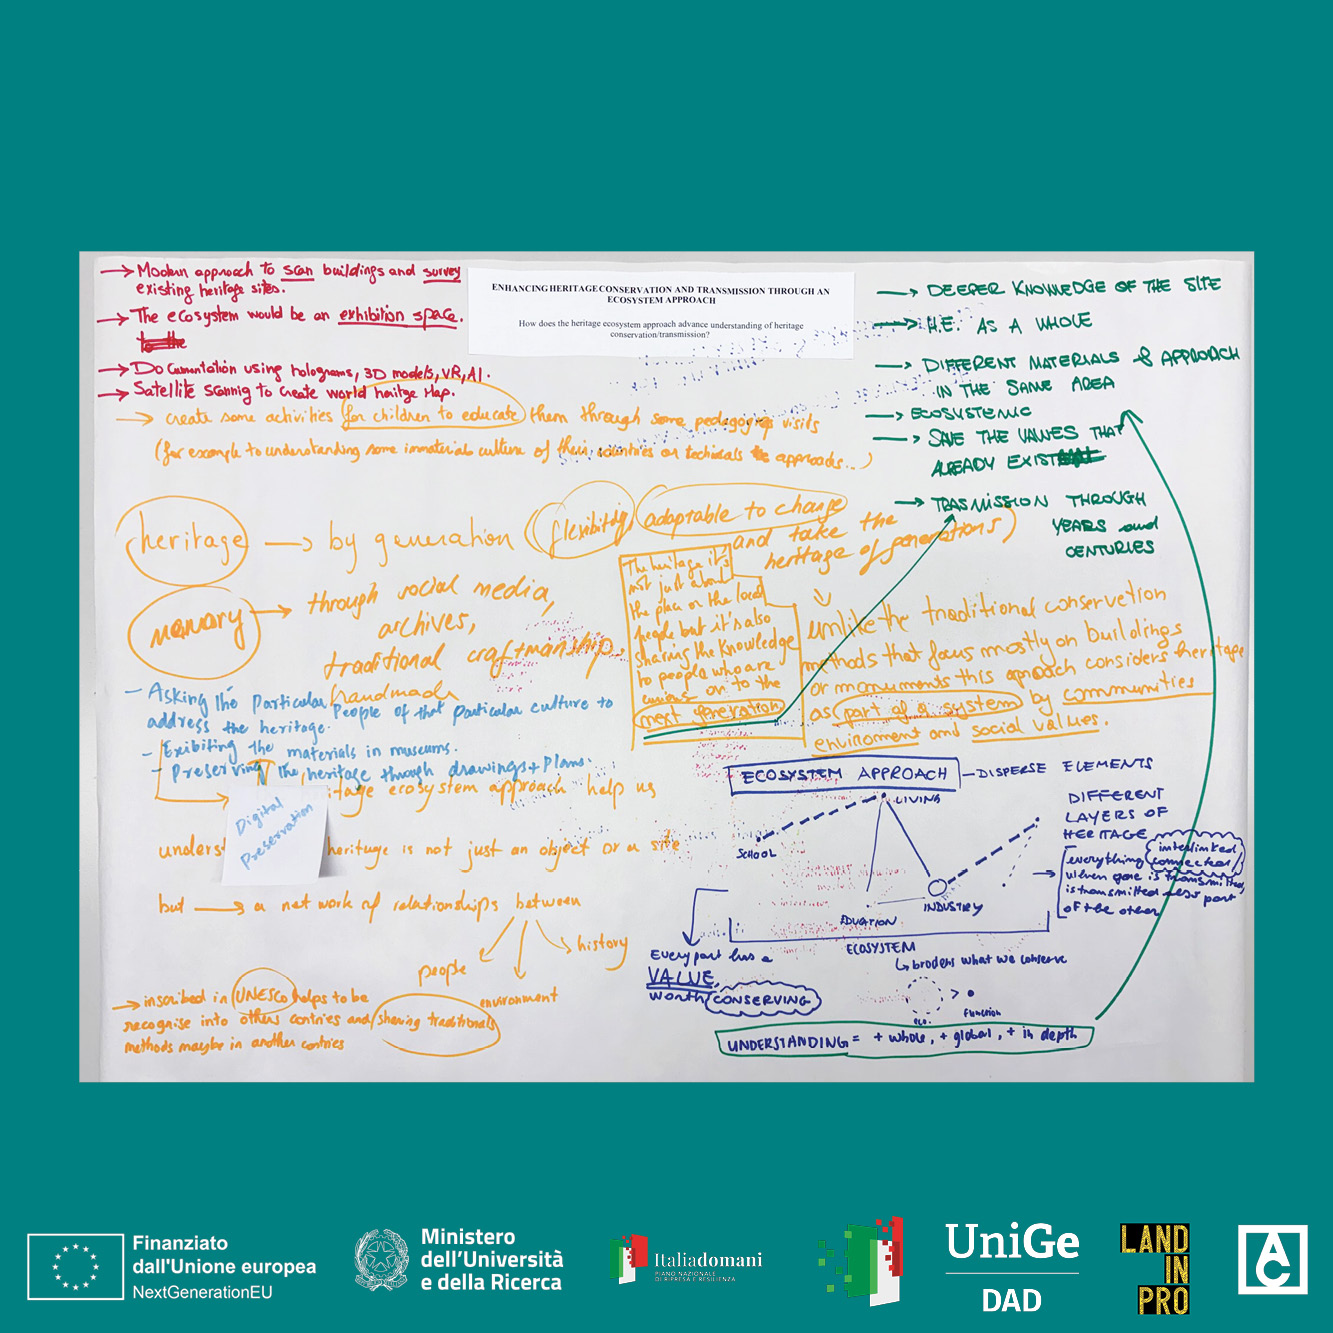 → Modern approach to scan buildings and survey
existing heritage sites.
→ The ecosystem would be an exhibition space.
→ Documentation using holograms, 3D models, VR, AI.
→ Satellite scannig to create world heritge Map.
→ create some activities for children to educate them through some pedagogiq visits
(for example to understanding some immaterial culture of their countries or techicals approads...)
ENHANCING HERITAGE CONSERVATION AND TRANSMISSION THROUGH AN
ECOSYSTEM APPROACH
How does the heritage ecosystem approach advance understanding of heritage
conservation/transmission?
→ DEEPER KNOWLEDGE OF THE SITE
→ H.E. AS A WHOLE
→ DIFFERENT MATERIALS & APPROACH
IN THE SAME AREA
→ ECOSYSTEMIC
→ SAVE THE VALUES THAT
ALREADY EXIST
→ TRASMISSION THROUGH
YEARS and
CENTURIES
heritage → by generation (flexibitiy adaptable to change
and take the
heritage of generations)
memory → through social media,
archives,
traditional craftmanship,
handmade
The heritage it's
not just about
the place or the local
people but it's also
sharing the knowledge
to people who are
curious or to the
next generation
unlike the traditional conservetion
methods that focus mostly on buildings
or monuments this aproach considers heritage
as part of a system by communities
environment and social values.
- Asking the Particular People of that particular culture to
address the heritage.
- Exibiting the materials in museums.
- Preserving the heritage through drawings + Plans.
Digital
Preservation
ritage ecosystem approach help us
underst heritage is not just an object or a site
but → a net work of relationships between
people
environment
history
→ inscribed in UNESCO helps to be
recognise into others contries and sharing traditionals
methods maybe in another contries
ECOSYSTEM APPROACH - DISPERSE ELEMENTS
LIVING
SCHOOL
EDUATION
INDUSTRY
ECOSYSTEM
↳ brodens what we conserve
eco. > • function
DIFFERENT
LAYERS OF
HERITAGE
→ everything interlinked
connected/
when one is transmitted,
is transmitted also part
of the other
Every part has a
VALUE,
worth CONSERVING
UNDERSTANDING = + whole, + global, + in depth
Finanziato
dall'Unione europea
NextGenerationEU
Ministero
dell'Università
e della Ricerca
Italiadomani
PIANO NAZIONALE
DI RIPRESA E RESILIENZA
UniGe
DAD
LAND
IN
PRO
AC